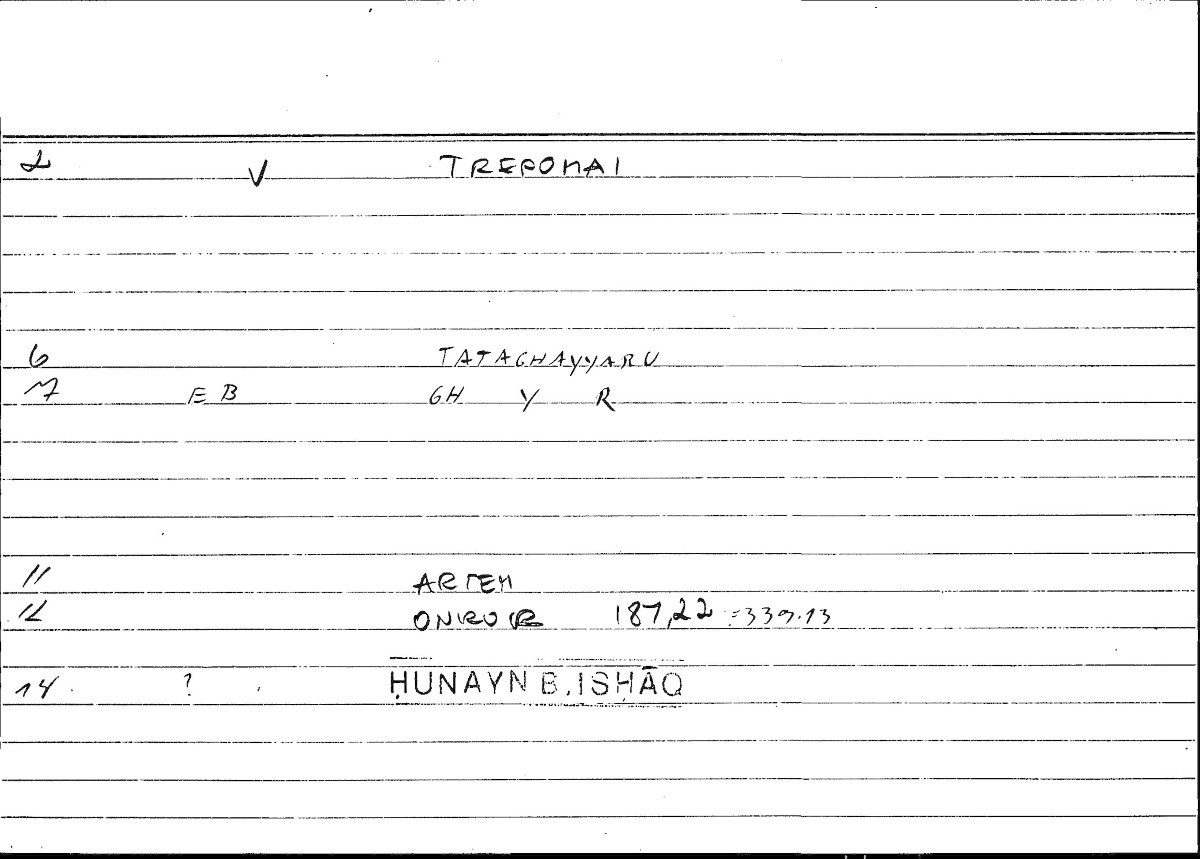 2 V TREPOMAI
6 TATAGHAYYARU
7 EB GH Y R
11 ARTEM
12 ONIROCR 187,22 =339.13
14. ? ḤUNAYN B. ISḤĀQ